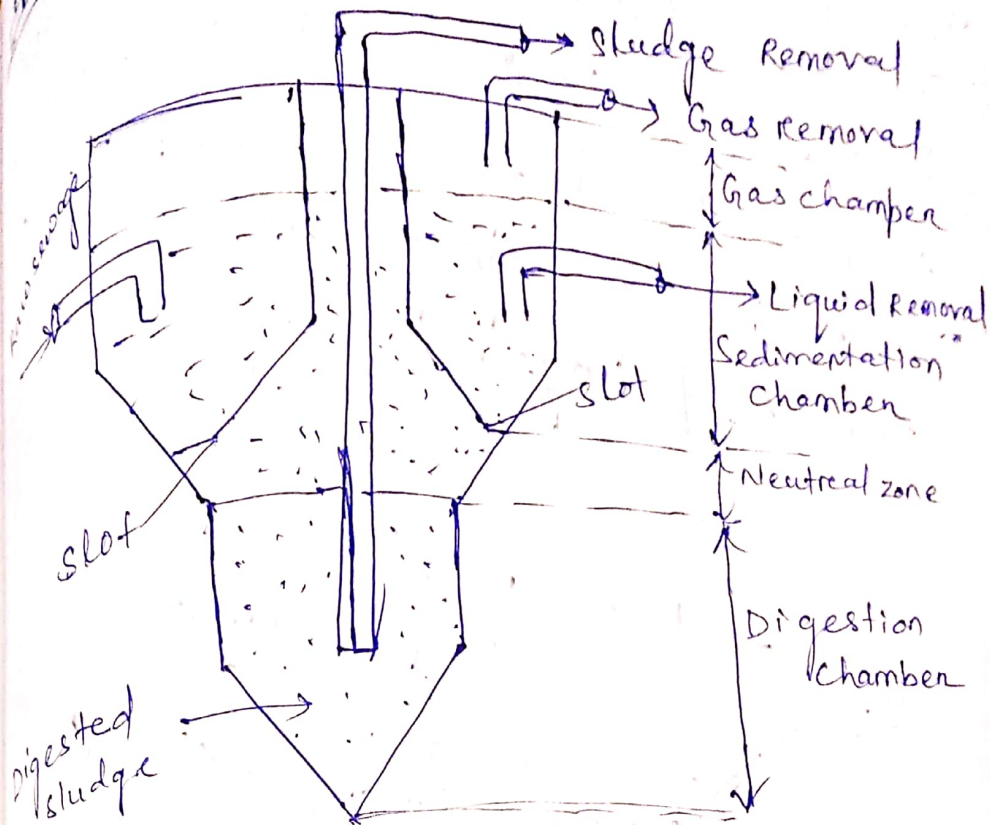 Sludge Removal
Gas Removal
Gas chamber
Liquid Removal
Sedimentation
Chamber
slot
Neutreal zone
Slot
Digestion
Chamber
Digested
sludge